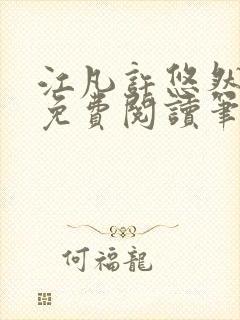 江凡許悠然
免費閱讀筆
何福龍